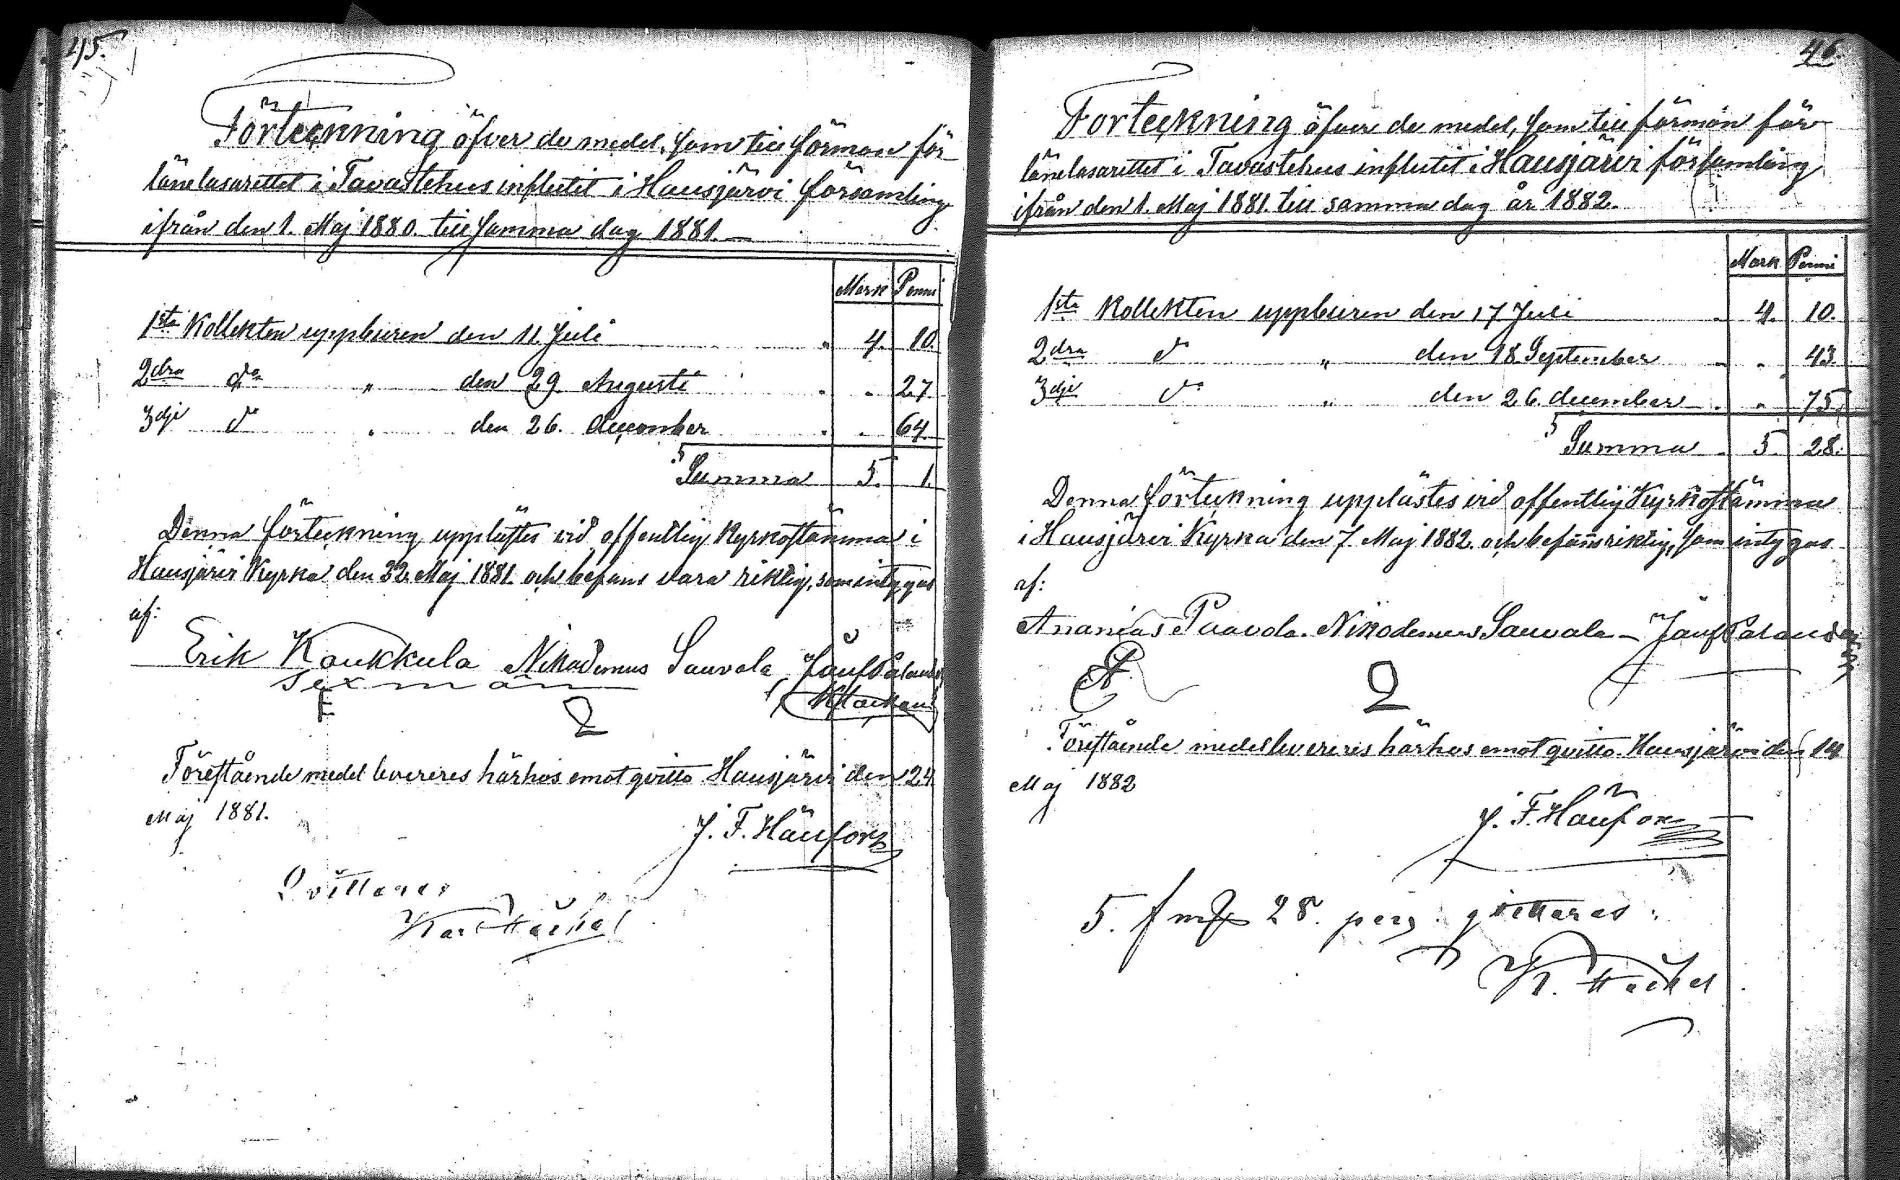 45.
Förteckning öfver de medel, som till förmon för
länelasarettet i Tavastehus influtit i Hausjärvi församling
ifrån den 1. Maj 1880. till samma dag 1881.
Mark Penni
1sta Kollekten uppburen den 11. Juli 4. 10.
2dra do " den 29 Augusti " 27.
3dje do " den 26. december " 64.
Summa 5. 1.
Denna förteckning upplästes vid offentlig Kyrkostämma i
Hausjärvi Kyrka den 22 Maj 1881. och befans vara riktig, som intygas
af:
Erik Kaukkula Nikodemus Sauvala
sexman
Förestående medel levereres härhos emot qvitto. Hausjärvi den 24.
Maj 1881.
J. F. Häufors
Qvitteras
46.
Förteckning öfver de medel, som till förmån för
länelasarettet i Tavastehus influtit i Hausjärvi församling
ifrån den 1. Maj 1881. till samma dag år 1882.
Mark Penni
1sta Kollekten uppburen den 17 Juli 4. 10.
2dra do " den 18 September " 43.
3dje do " den 26 december " 75.
Summa 5. 28.
Denna förteckning upplästes vid offentlig Kyrkostämma
i Hausjärvi Kyrka den 7. Maj 1882. och befanns riktig, som intygas
af:
Ananias Paavola. Nikodemus Sauvala
Förestående medel levereres härhos emot qvitto. Hausjärvi den 14
Maj 1882
J. F. Häufors
5. fmk 28. pei qvitteras.